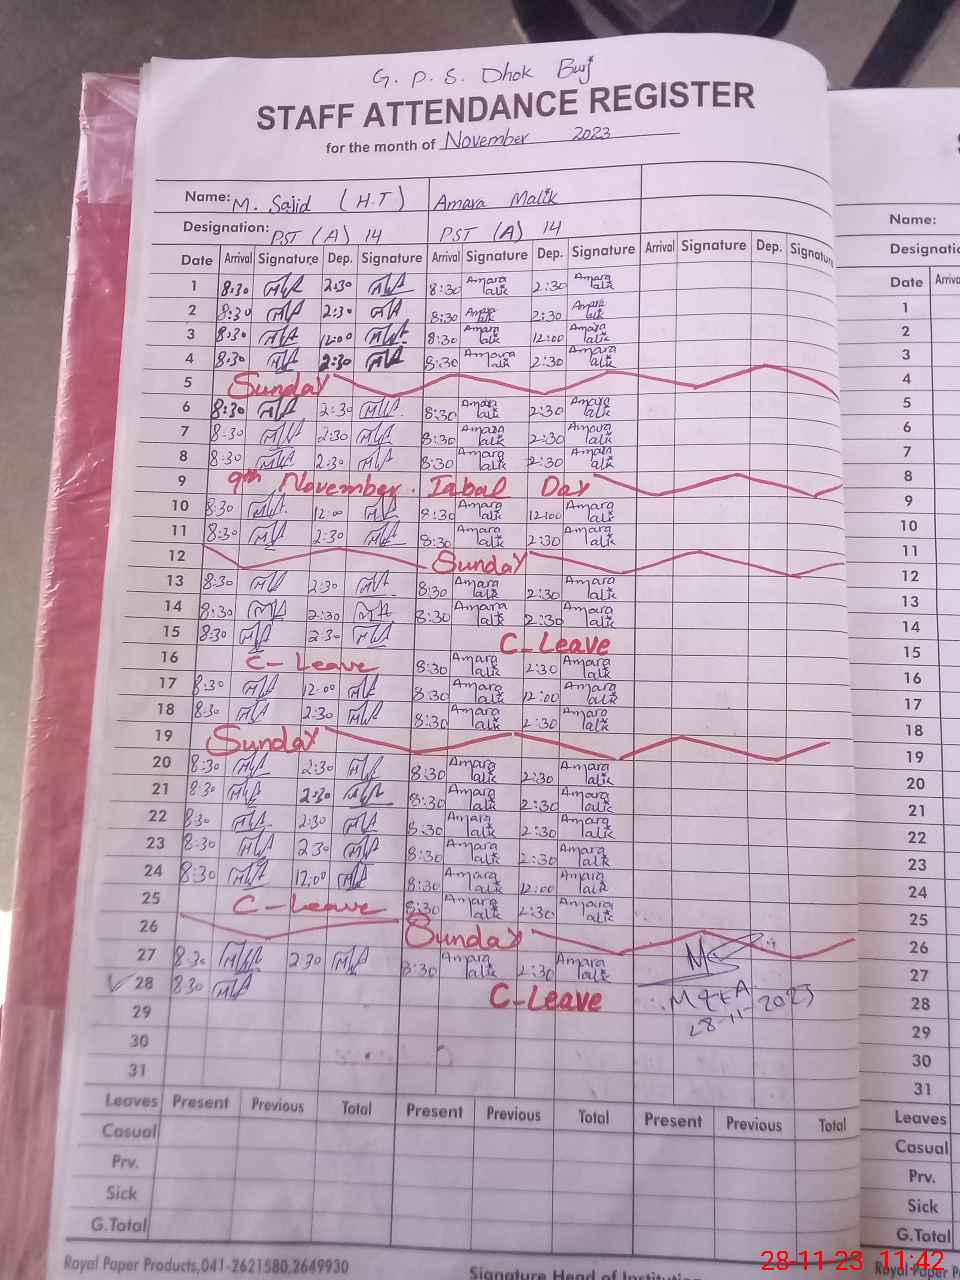 G. P. S. Dhok Burj
STAFF ATTENDANCE REGISTER
for the month of November 2023
Name: M. Sajid (H.T) Amara Malik
Designation: PST (A) 14 PST (A) 14
Date Arrival Signature Dep. Signature Arrival Signature Dep. Signature Arrival Signature Dep. Signature
1 8:30 2:30 8:30 Amara Malik 2:30 Amara Malik
2 8:30 2:30 8:30 Amara Malik 2:30 Amara Malik
3 8:30 12:00 8:30 Amara Malik 12:00 Amara Malik
4 8:30 2:30 8:30 Amara Malik 2:30 Amara Malik
5 Sunday
6 8:30 2:30 8:30 Amara Malik 2:30 Amara Malik
7 8:30 2:30 8:30 Amara Malik 2:30 Amara Malik
8 8:30 2:30 8:30 Amara Malik 2:30 Amara Malik
9 9th November. Iqbal Day
10 8:30 12:00 8:30 Amara Malik 12:00 Amara Malik
11 8:30 2:30 8:30 Amara Malik 2:30 Amara Malik
12 Sunday
13 8:30 2:30 8:30 Amara Malik 2:30 Amara Malik
14 8:30 2:30 8:30 Amara Malik 2:30 Amara Malik
15 8:30 2:30 C-Leave
16 C-Leave 8:30 Amara Malik 2:30 Amara Malik
17 8:30 12:00 8:30 Amara Malik 12:00 Amara Malik
18 8:30 2:30 8:30 Amara Malik 2:30 Amara Malik
19 Sunday
20 8:30 2:30 8:30 Amara Malik 2:30 Amara Malik
21 8:30 2:30 8:30 Amara Malik 2:30 Amara Malik
22 8:30 2:30 8:30 Amara Malik 2:30 Amara Malik
23 8:30 2:30 8:30 Amara Malik 2:30 Amara Malik
24 8:30 12:00 8:30 Amara Malik 12:00 Amara Malik
25 C-Leave 8:30 Amara Malik 2:30 Amara Malik
26 Sunday
27 8:30 2:30 8:30 Amara Malik 2:30 Amara Malik
28 8:30 C-Leave
28-11-2023
29
30
31
Leaves Present Previous Total Present Previous Total Present Previous Total
Casual
Prv.
Sick
G.Total
Royal Paper Products,041-2621580,2649930
Signature Head of
Name:
Date
1
2
3
4
5
6
7
8
9
10
11
12
13
14
15
16
17
18
19
20
21
22
23
24
25
26
27
28
29
30
31
Leaves
Casual
Prv.
Sick
G.Total
Royal Paper
28-11-23 11:42